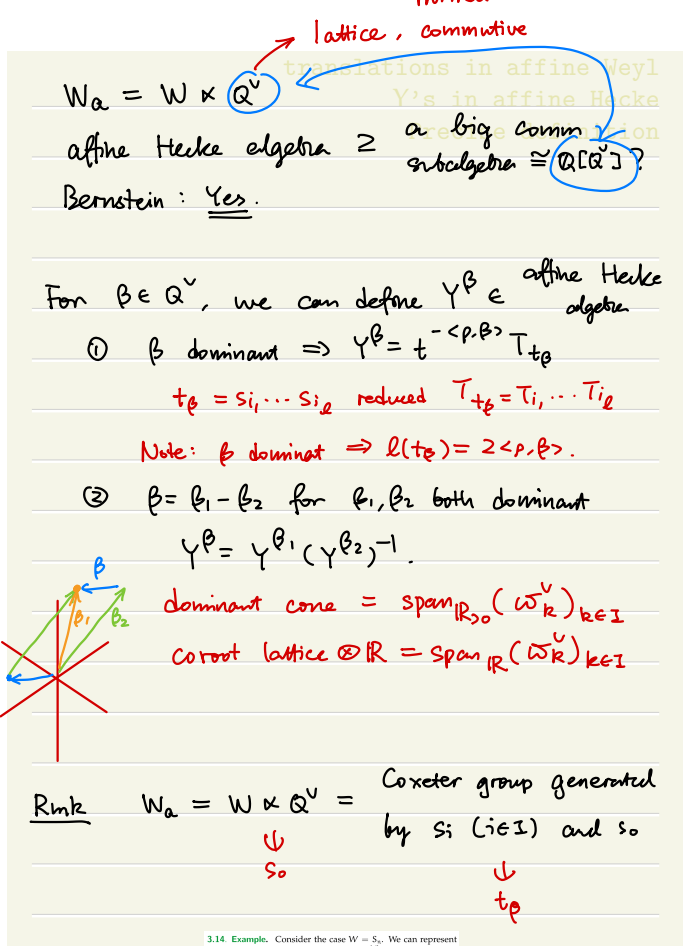 lattice, commutive
translations in affine Weyl
Wₐ = W ⋉ Q^∨
Y's in affine Hecke
affine Hecke algebra ⊇ a big comm subalgebra ≅ Q[Q^∨] ?
Bernstein : Yes.
For β ∈ Q^∨, we can define Y^β ∈ affine Hecke algebra
① β dominant ⇒ Y^β = t^{-<ρ,β>} T_{t_β}
t_β = s_{i₁} ⋯ s_{i_ℓ} reduced T_{t_β} = T_{i₁} ⋯ T_{i_ℓ}
Note: β dominat ⇒ ℓ(t_β) = 2<ρ,β>.
② β = β₁ - β₂ for β₁, β₂ both dominant
Y^β = Y^{β₁} (Y^{β₂})^{-1}.
β
β₁
β₂
dominant cone = span_{ℝ≥0} (ϖ_k^∨)_{k∈I}
coroot lattice ⊗ ℝ = span_ℝ (ϖ_k^∨)_{k∈I}
Rmk Wₐ = W ⋉ Q^∨ = Coxeter group generated
by s_i (i∈I) and s₀
↓
s₀
↓
t_β
3.14. Example. Consider the case W = Sₙ. We can represent